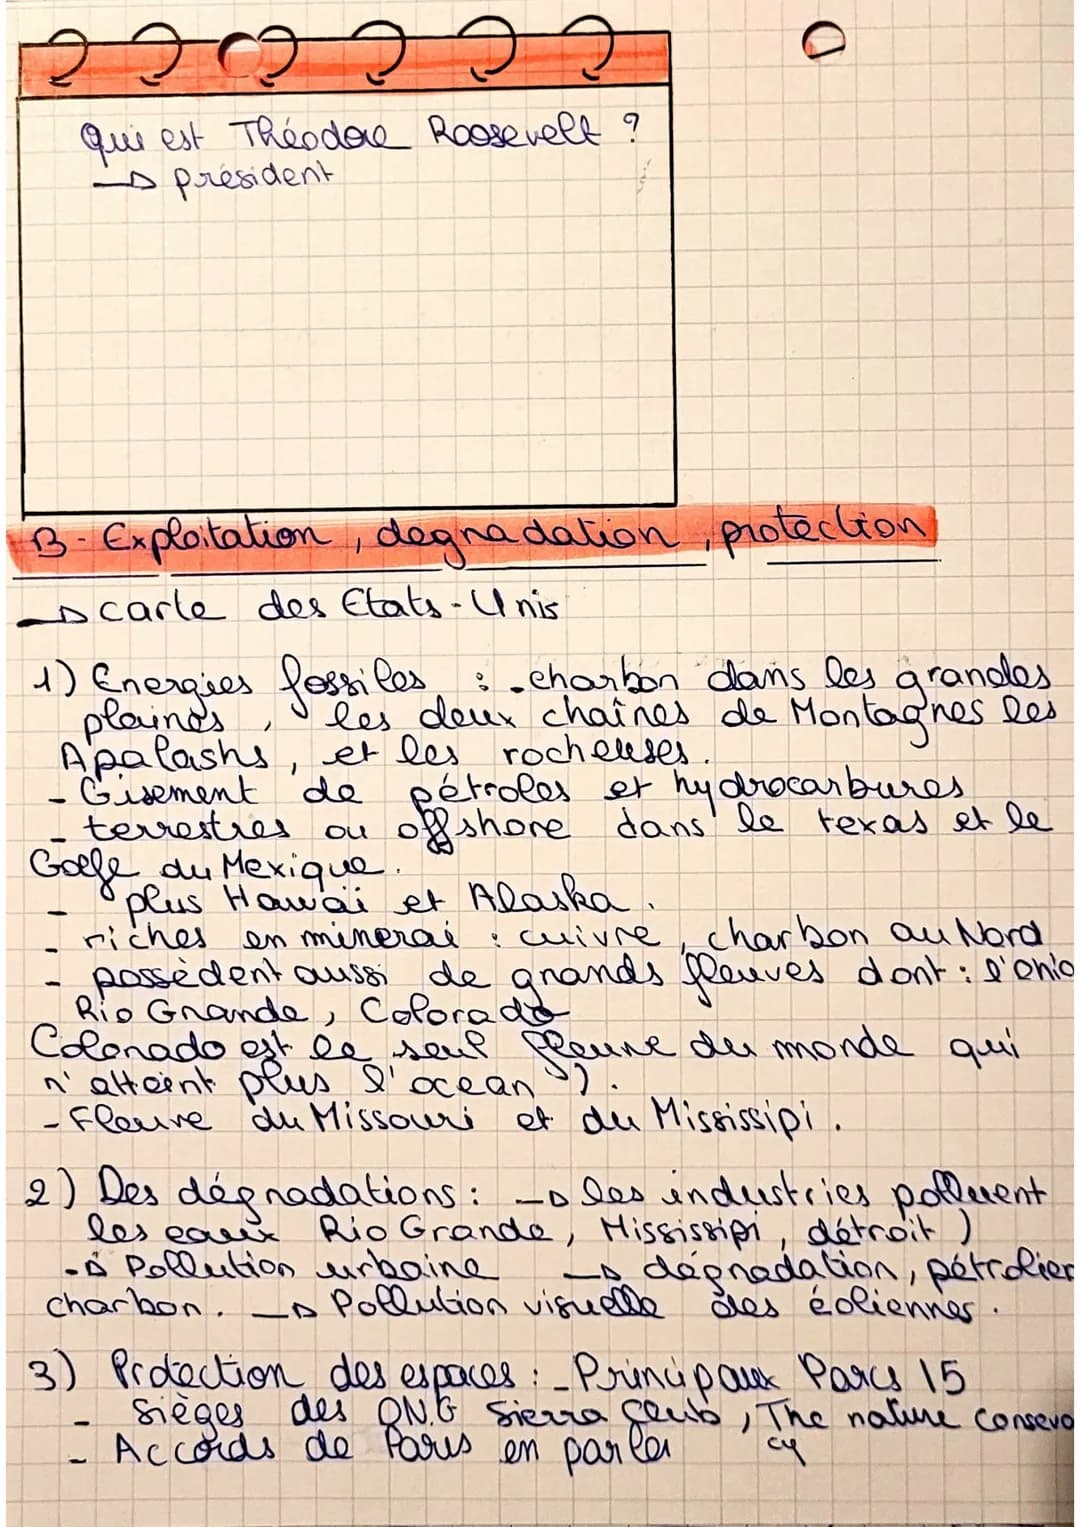 Qui est Théodore Roosevelt ?
→ président
B - Exploitation, dégradation, protection
→ carte des Etats-Unis
1) Energies fossiles : - charbon dans les grandes
plaines, les deux chaînes de Montagnes les
Apalashs, et les rocheuses.
- Gisement de pétroles et hydrocarbures
- terrestres ou offshore dans le texas et le
Golfe du Mexique.
- plus Hawaï et Alaska.
- riches en minerai : cuivre, charbon au Nord
- possèdent aussi de grands fleuves dont : l'ohio
Rio Grande, Colorado
Colorado est le seul fleuve du monde qui
n'atteint plus l'ocean ").
- Fleuve du Missouri et du Mississipi.
2) Des dégradations : → les industries polluent
les eaux Rio Grande, Mississipi, détroit )
→ Pollution urbaine → dégradation, pétrolier
charbon. → Pollution visuelle des éoliennes.
3) Protection des espaces : - Principaux Parcs 15
- sièges des ON.G Sierra Club, The nature conserva
cy
- Accords de Paris en parler